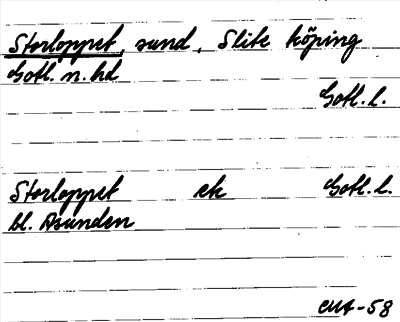 Storloppet, sund, Slite köping
Gotl. n. hd
Gotl. l.
Storloppet ek Gotl. l.
bl. Asunden
CMA-58